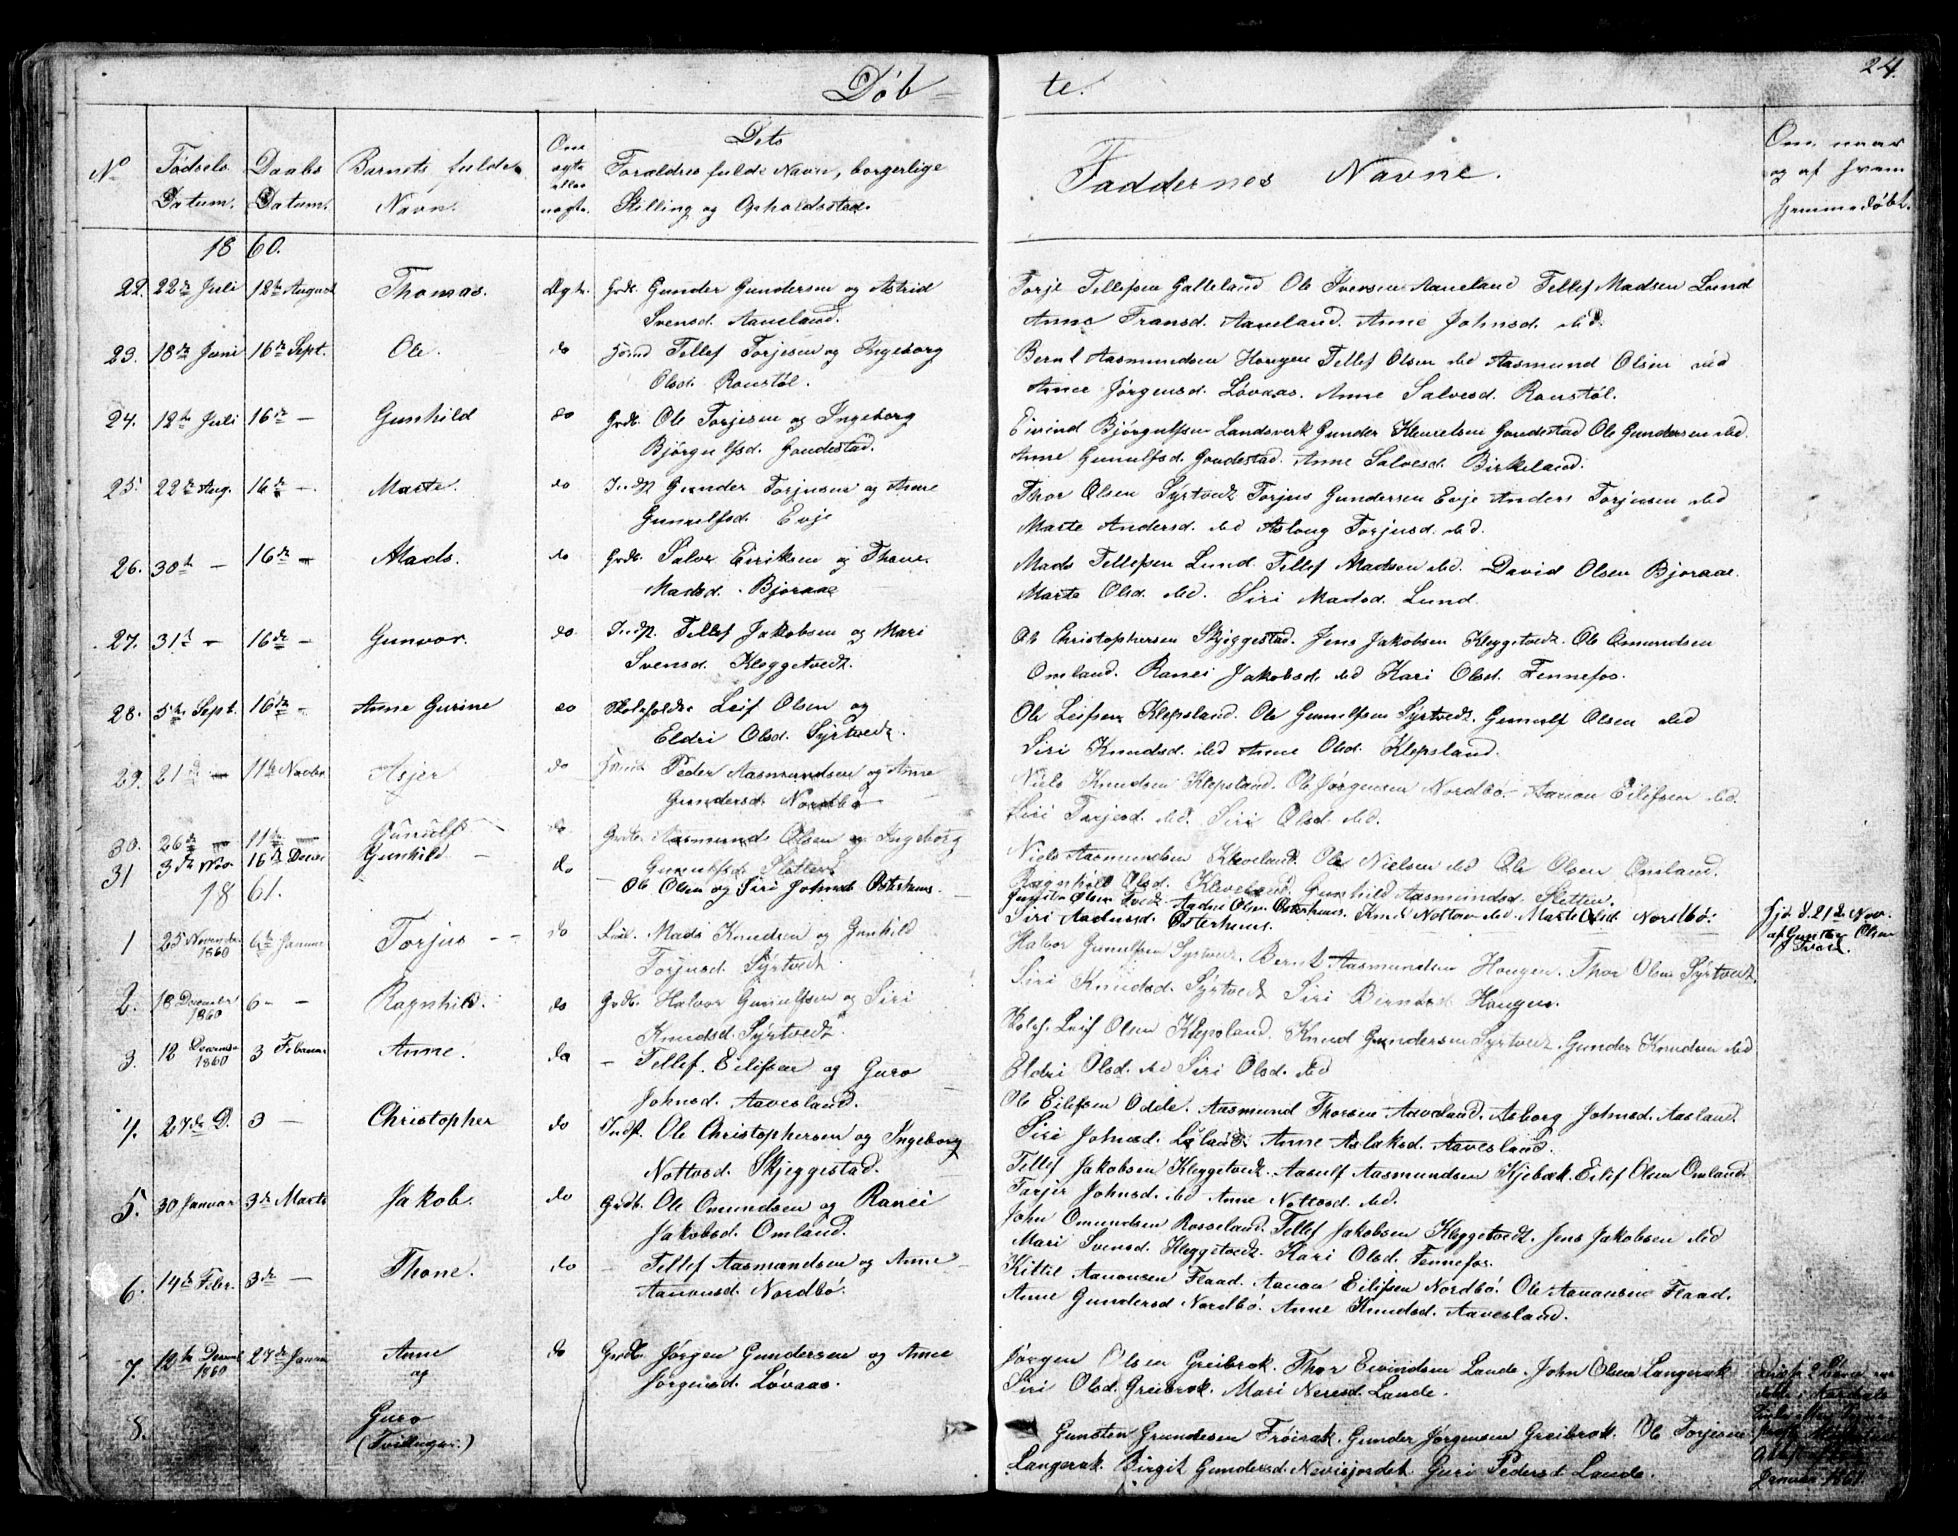 Døb-
te.
24.
No
Fødsels Datum.
Daabs Datum.
Barnets fulde Navn.
Om ægte eller uægte.
Dets Forældres fulde Navn, borgerlige Stilling og Opholdssted.
Faddernes Navne.
Om, naar og af hvem hjemmedøbt.
1860.
22. 22de Juli 18de August Thomas. Ægte. Grdb. Gunder Gundersen og Astrid
Svensd. Aaneland.
Torje Tellefsen Galteland Ole Iversen Aaneland Tellef Madsen Lund
Anne Fransd. Aaveland. Anne Johnsd. ibid.
23. 18de Juni 16de Sept. Ole. do Tellef Torjesen og Ingeborg
Olsd. Ronstøl.
Bernt Aasmundsen Hougen Tellef Olsen ibid Aasmund Olsen ibid
Anne Jørgensd. Løvaas. Anne Salvesd. Ronstøl.
24. 12te Juli 16de — Gunhild do Grdb. Ole Torjesen og Ingeborg
Bjørgulfsd. Goudestad.
Eivind Bjørgulfsen Landsverk Gunder Goudestad Ole Gundersen ibid.
Anne Gunulfsd. Goudestad. Anne Salvesd. Birkeland.
25. 22de Aug. 16de — Marte. do Indp Gunder Torjusen og Anne
Gunulfsd. Evje
Thor Olsen Syrtvedt Torjus Gundersen Evje Anders Torjusen ibid
Marte Andersd. ibid Asloug Torjusd. ibid.
26. 30te — 16de — Mads. do Grdb. Salve Eiriksen og Thone.
Madsd. Bjoraae
Mads Tellefsen Lund. Tellef Madsen ibid. David Olsen Bjoraae.
Marte Olsd. ibid. Siri Madsd. Lund
27. 31te — 16de — Gunvor. do. Indp. Tellef Jakobsen og Mari
Svensd. Kleggetvedt.
Ole Christophersen Skjeggestad. Jens Jakobsen Kleggetvedt. Ole Omundsen
Omland. Ranei Jakobsd. ibid Kari Olsd. Fennefos.
28. 5te Sept. 16de — Anne Gurine do Skoleholder Leif Olsen og
Eldri Olsd. Syrtvedt.
Ole Leifsen Klepsland. Ole Gunulfsen Syrtvedt. Gunulf Olsen ibid
Siri Knudsd. ibid Anne Olsd. Klepsland.
29. 21de — 11te Novbr Asjer do Peder Aasmundsen og Anne
Gundersd. Nordbø
Niels Knudsen Klepsland. Ole Jørgensen Nordbø. Aanon Eilifsen ibid.
Siri Torjesd. ibid. Siri Olsd. ibid.
30. 26de — 11te — Gunulf do Grdb. Aasmund Olsen og Ingeborg
Gunulfsd. Sletten
Niels Aasmundsen Kleveland. Ole Nielsen ibid Ole Olsen Omland.
Ragnhild Olsd. Kleveland. Gunhild Aasmundsd. Sletten.
31 3de Nov. 16de Decbr Gunhild — do — Ole Olsen og Siri Johnsd. Østerhuus. —
Olsen Østerhuus. Knud Nottov ibid. Marte Olsd. Nordbø.
Siri Aadnesd. Østerhuus.
21de Nov. af Gunsten Olsen
1861.
1 25 November 1860 6te Januar Torjus — — do Mads Knudsen og Gunhild
Torjusd. Syrtvedt.
Halvor Gunulfsen Syrtvedt. Bernt Aasmundsen Hougen. Thor Olsen Syrtvedt.
Siri Knudsd. Syrtvedt Siri Berntsd. Hougen.
2. 18 December 1860 6 — — Ragnhild. do Grdb. Halvor Gunulfsen og Siri
Knudsd. Syrtvedt.
Leif Olsen Klepsland. Knud Gundersen Syrtvedt. Gunder Knudsen ibid
Eldri Olsd. ibid Siri Olsd. ibid
3. 12 December 1860 3 Februar Anne. do — Tellef Eilifsen og Guro
Johnsd. Aavesland.
Ole Eilifsen Odde. Aasmund Thorsen Aaveland. Asborg Johnsd. Aasland.
Siri Johnsd. Anne Aslaksd. Aavesland.
4. 27de D. 3 — Christopher do Indst. Ole Christophersen og Ingeborg
Nottosd. Skjeggestad.
Tellef Jakobsen Kleggetvedt. Aasulf Aasmundsen Kjebæk. Eilif Olsen Omland.
Torjer Johnsd. ibid Anne Nottosd. ibid.
5. 30 Januar 3de Marts Jakob. do Grdb. Ole Omundsen og Ranei
Jakobsd. Omland.
John Omundsen Rosseland. Tellef Jakobsen Kleggetvedt. Jens Jakobsen ibid
Mari Svensd. Kleggetvedt. Kari Olsd. Fennefos.
6. 14de Febr. 3de — Thone. do — Tellef Aasmundsen og Anne
Aanonsd. Nordbø.
Kittil Aanonsen Flaad. Aanon Eilifsen Nordbø. Ole Aanonsen Flaad.
Anne Gundersd Nordbø. Anne Knudsd. Aavesland.
7. 12te Decembr 1860 27de Januar Anne og do Grdb. Jørgen Gundersen og Anne
Jørgensd. Løvaas.
Jørgen Olsen Greibrok. Thor Eivindsen Lande. John Olsen Langerak
Siri Olsd. Greibrok. Mari Neresd. Lande.
8. Guro
(Tvillinger.)
Gunsten Frøirak. Gunder Jørgensen Greibrok. Ole Torjesen
Langerak. Birgit Gundersd. Guri Pedersd Lande.
Januar 1861